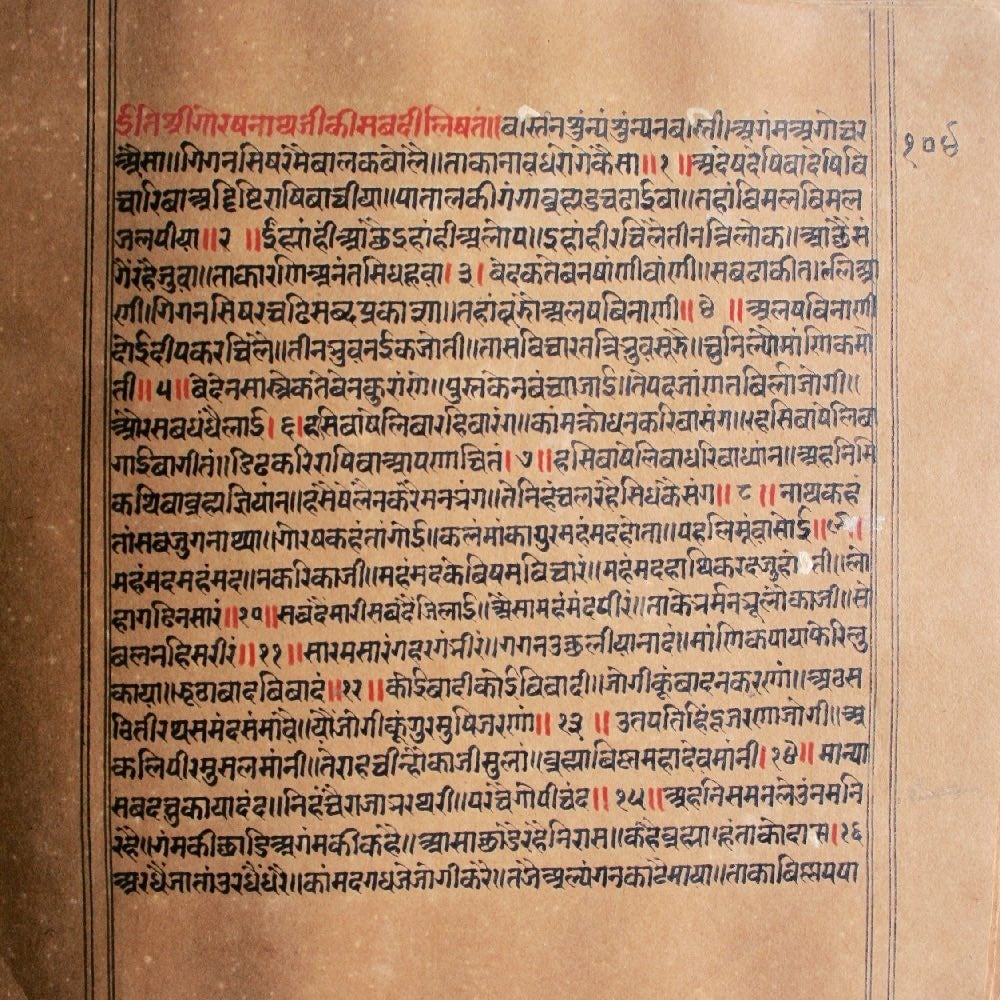 इति श्री गोरषनाथ जी की सबदी लिषतं॥ बस्ति न सुंन्यं सुंन्यं न बस्ती॥ अगम अगोचर
अैसा॥ गिगन सिषर मैं बालक बोलै॥ ताका नांव धरोगे कैसा॥१॥ अदेष देषिबा देषि बि
चारिबा अदिष्टि राषिबा चीया॥ पाताल की गंगा ब्रह्मंड चढाईबा॥ तहां बिमल बिमल
जल पीया॥२॥ ईहां ही आछै ईहां ही अलोप॥ ईहां ही रचिलै तीन त्रिलोक॥ आछै सं
गैं रहै जुवा॥ ता कारणि अनंत सिध हूवा।३। बेद कतेब न षांणी बांणी॥ सब ढाकी तलि आ
णी॥ गिगन सिषर चढि सबद प्रकास्या॥ तहां बूझौ अलष बिनाणी॥४॥ अलष बिनाणी
दोई दीपक रचिलै॥ तीन भुवन ईक जोती॥ तास बिचारत त्रिभुवन सूझै॥ चुनि ल्यौ माणिक मो
ती॥५॥ बेदे न सास्त्रे कतेबे न कुराणे॥ पुस्तके न बंच्या जाई॥ ते पद जांणत बिरला जोगी॥
और सब धंधै लाई।६। हसिबा षेलिबा रहिबा रंग॥ कांम क्रोध न करिबा संग॥ हसिबा षेलिबा
गाईबा गीतं॥ द्रिढ करि राषिबा आपणा चितं।७॥ हसिबा षेलिबा धरिबा ध्यान॥ अहनिसि
कथिबा ब्रह्म गियांन॥ हंसै षेलै न करै मन भंग॥ ते निहचल रहै सिध कै संग॥८॥ नाथ कहं
तां सब जुग नाथ्या॥ गोरष कहंतां गोई॥ कलमां का गुर महंमद होता॥ पहलि मूवा सोई॥९॥
महंमद महंमद॥ न करि काजी॥ महंमद का बिषम बिचारं॥ महंमद हाथि करद जु होती॥ लो
हा गढि न सारं॥१०॥ सबदै मारी सबदै जिलाई॥ अैसा महंमद पीरं॥ ताकै भर्म न भूलो काजी॥ सो
बल नहि सरीरं॥११॥ सारमसारं गहर गंभीरं॥ गगन उछलीया नादं॥ माणिक पाया फेरि लु
काया॥ झूठा बाद बिबादं॥१२॥ कोई बादी कोई बिबादी॥ जोगी कूं बाद न करणां॥ अठस
ठि तीरथ समंद समांवै॥ यौं जोगी कूं गुरमुषि जरणां॥१३॥ उतपति हिंदू जरणा जोगी॥ अ
कलि पीर मुसलमांनी॥ ते राह चीन्हौ काजी मुलां॥ ब्रह्मा बिष्न महादेव मांनी।१४॥ मान्या
सबद चुकाया दंद॥ निहचै राजा भरथरी॥ परचै गोपीचंद॥१५॥ अहनिसि मन लै उनमनि
रहै॥ गंम की छाडि अगम की कहै॥ आसा छाडै रहै निरास॥ कहै ब्रह्मा हूं ताका दास।१६
अरधै जातां उरधै धरै॥ कांम दगध जे जोगी करै॥ तजै अल्यंगन काटै माया॥ ताका बिष्न पषा
१०४